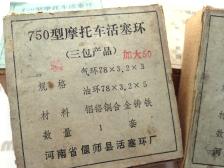 750型摩托车活塞环
(三包产品) 加大50
气环78×3.2×3
规格
油环78×3.2×5
材料 铝铬铜合金铸铁
数量 1 套
河南省偃师县活塞环厂